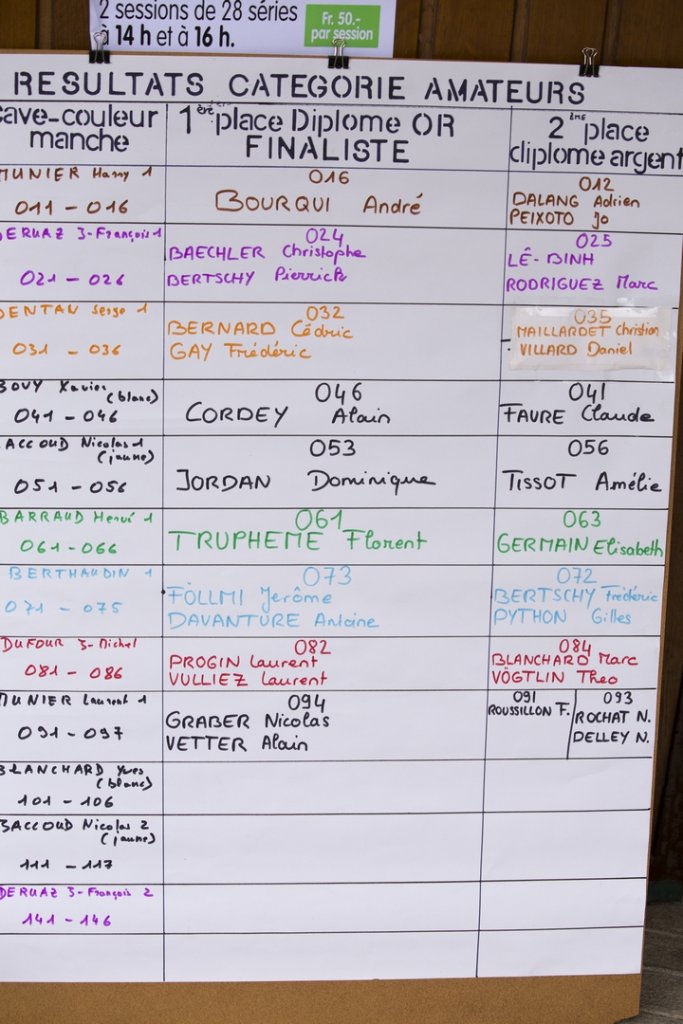 2 sessions de 28 séries
à 14 h et à 16 h.
Fr. 50.-
par session
RESULTATS CATEGORIE AMATEURS
cave-couleur
manche
1ère place Diplome OR
FINALISTE
2ème place
diplome argent
MUNIER Harry 1
011 - 016
016
BOURQUI André
012
DALANG Adrien
PEIXOTO Jo
DERUAZ J-François 1
021 - 026
024
BAECHLER Christophe
BERTSCHY Pierrick
025
LÊ-BINH
RODRIGUEZ Marc
DENTAN Serge 1
031 - 036
032
BERNARD Cédric
GAY Frédéric
035
MAILLARDET Christian
VILLARD Daniel
BOVY Xavier
(blanc)
041 - 046
046
CORDEY Alain
041
FAURE Claude
BACCOUD Nicolas 1
(jaune)
051 - 056
053
JORDAN Dominique
056
TISSOT Amélie
BARRAUD Hervé 1
061 - 066
061
TRUPHEME Florent
063
GERMAIN Elisabeth
BERTHAUDIN 1
071 - 075
073
FÖLLMI Jerôme
DAVANTURE Antoine
072
BERTSCHY Frédéric
PYTHON Gilles
DUFOUR J-Michel
081 - 086
082
PROGIN Laurent
VULLIEZ Laurent
084
BLANCHARD Marc
VÖGTLIN Theo
MUNIER Laurent 1
091 - 097
094
GRABER Nicolas
VETTER Alain
091
ROUSSILLON F.
093
ROCHAT N.
DELLEY N.
BLANCHARD Yves
(blanc)
101 - 106
BACCOUD Nicolas 2
(jaune)
111 - 117
DERUAZ J-François 2
141 - 146